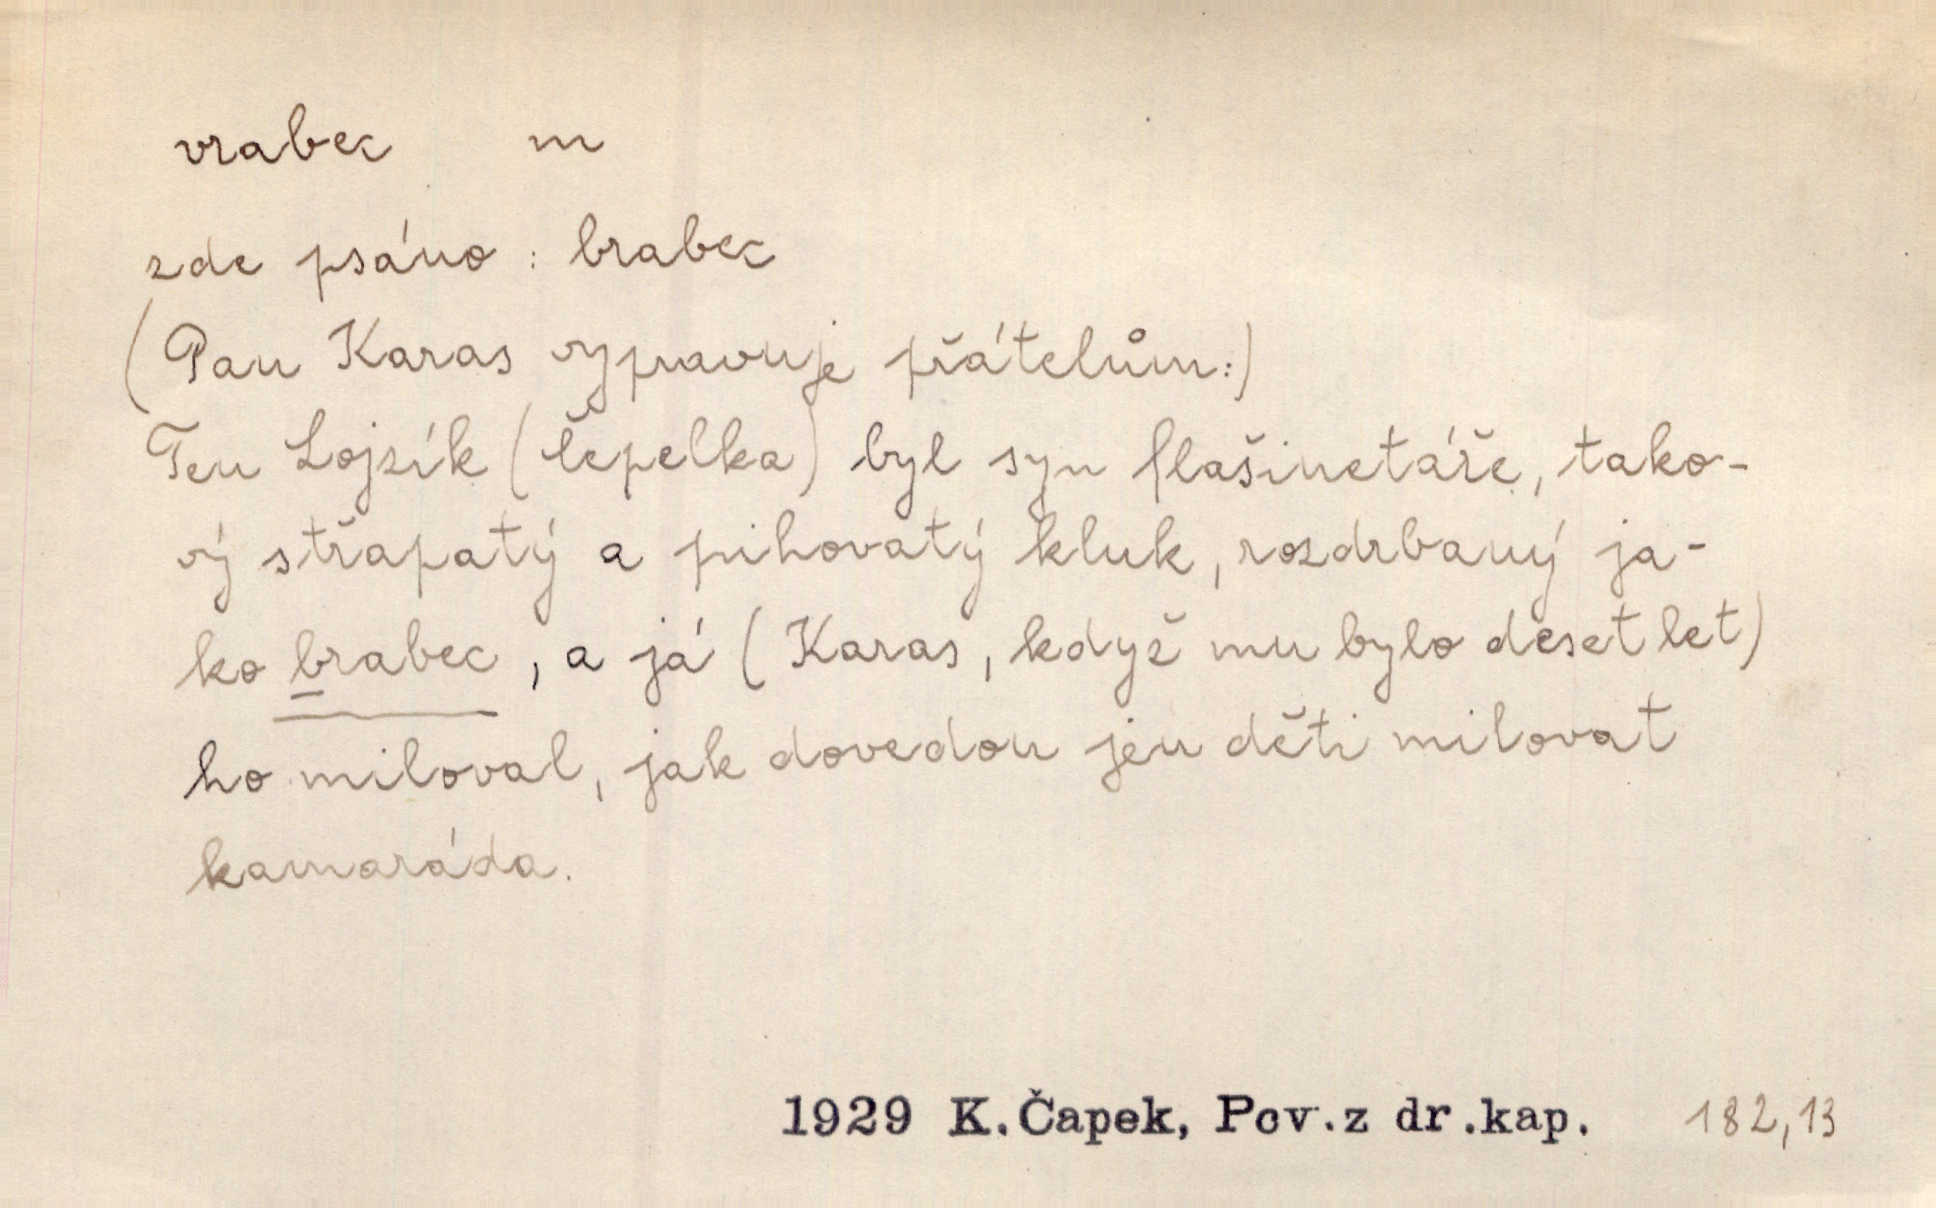 vrabec m
zde psáno : brabec
(Pan Karas vypravuje přátelům:)
Ten Lojzík (Čepelka) byl syn flašinetáře, tako-
vý střapatý a pihovatý kluk, rozdrbaný ja-
ko brabec, a já (Karas, když mu bylo deset let)
ho miloval, jak dovedou jen děti milovat
kamaráda.
1929 K.Čapek, Pov.z dr.kap. 182,13